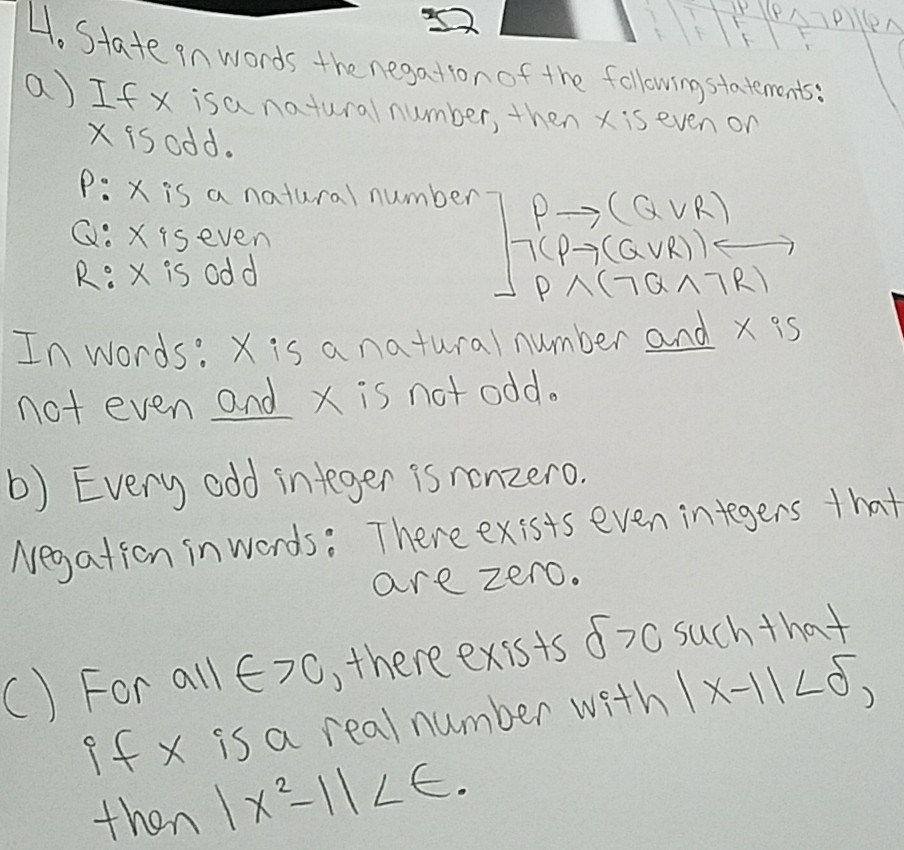 4. State in words the negation of the following statements:
a) If x is a natural number, then x is even or
x is odd.
P: x is a natural number
Q: x is even
R: x is odd
P→(Q∨R)
¬(P→(Q∨R))⟷
P∧(¬Q∧¬R)
In words: x is a natural number and x is
not even and x is not odd.
b) Every odd integer is nonzero.
Negation in words: There exists even integers that
are zero.
c) For all ϵ>0, there exists δ>0 such that
if x is a real number with |x-1|<δ,
then |x²-1|<ϵ.